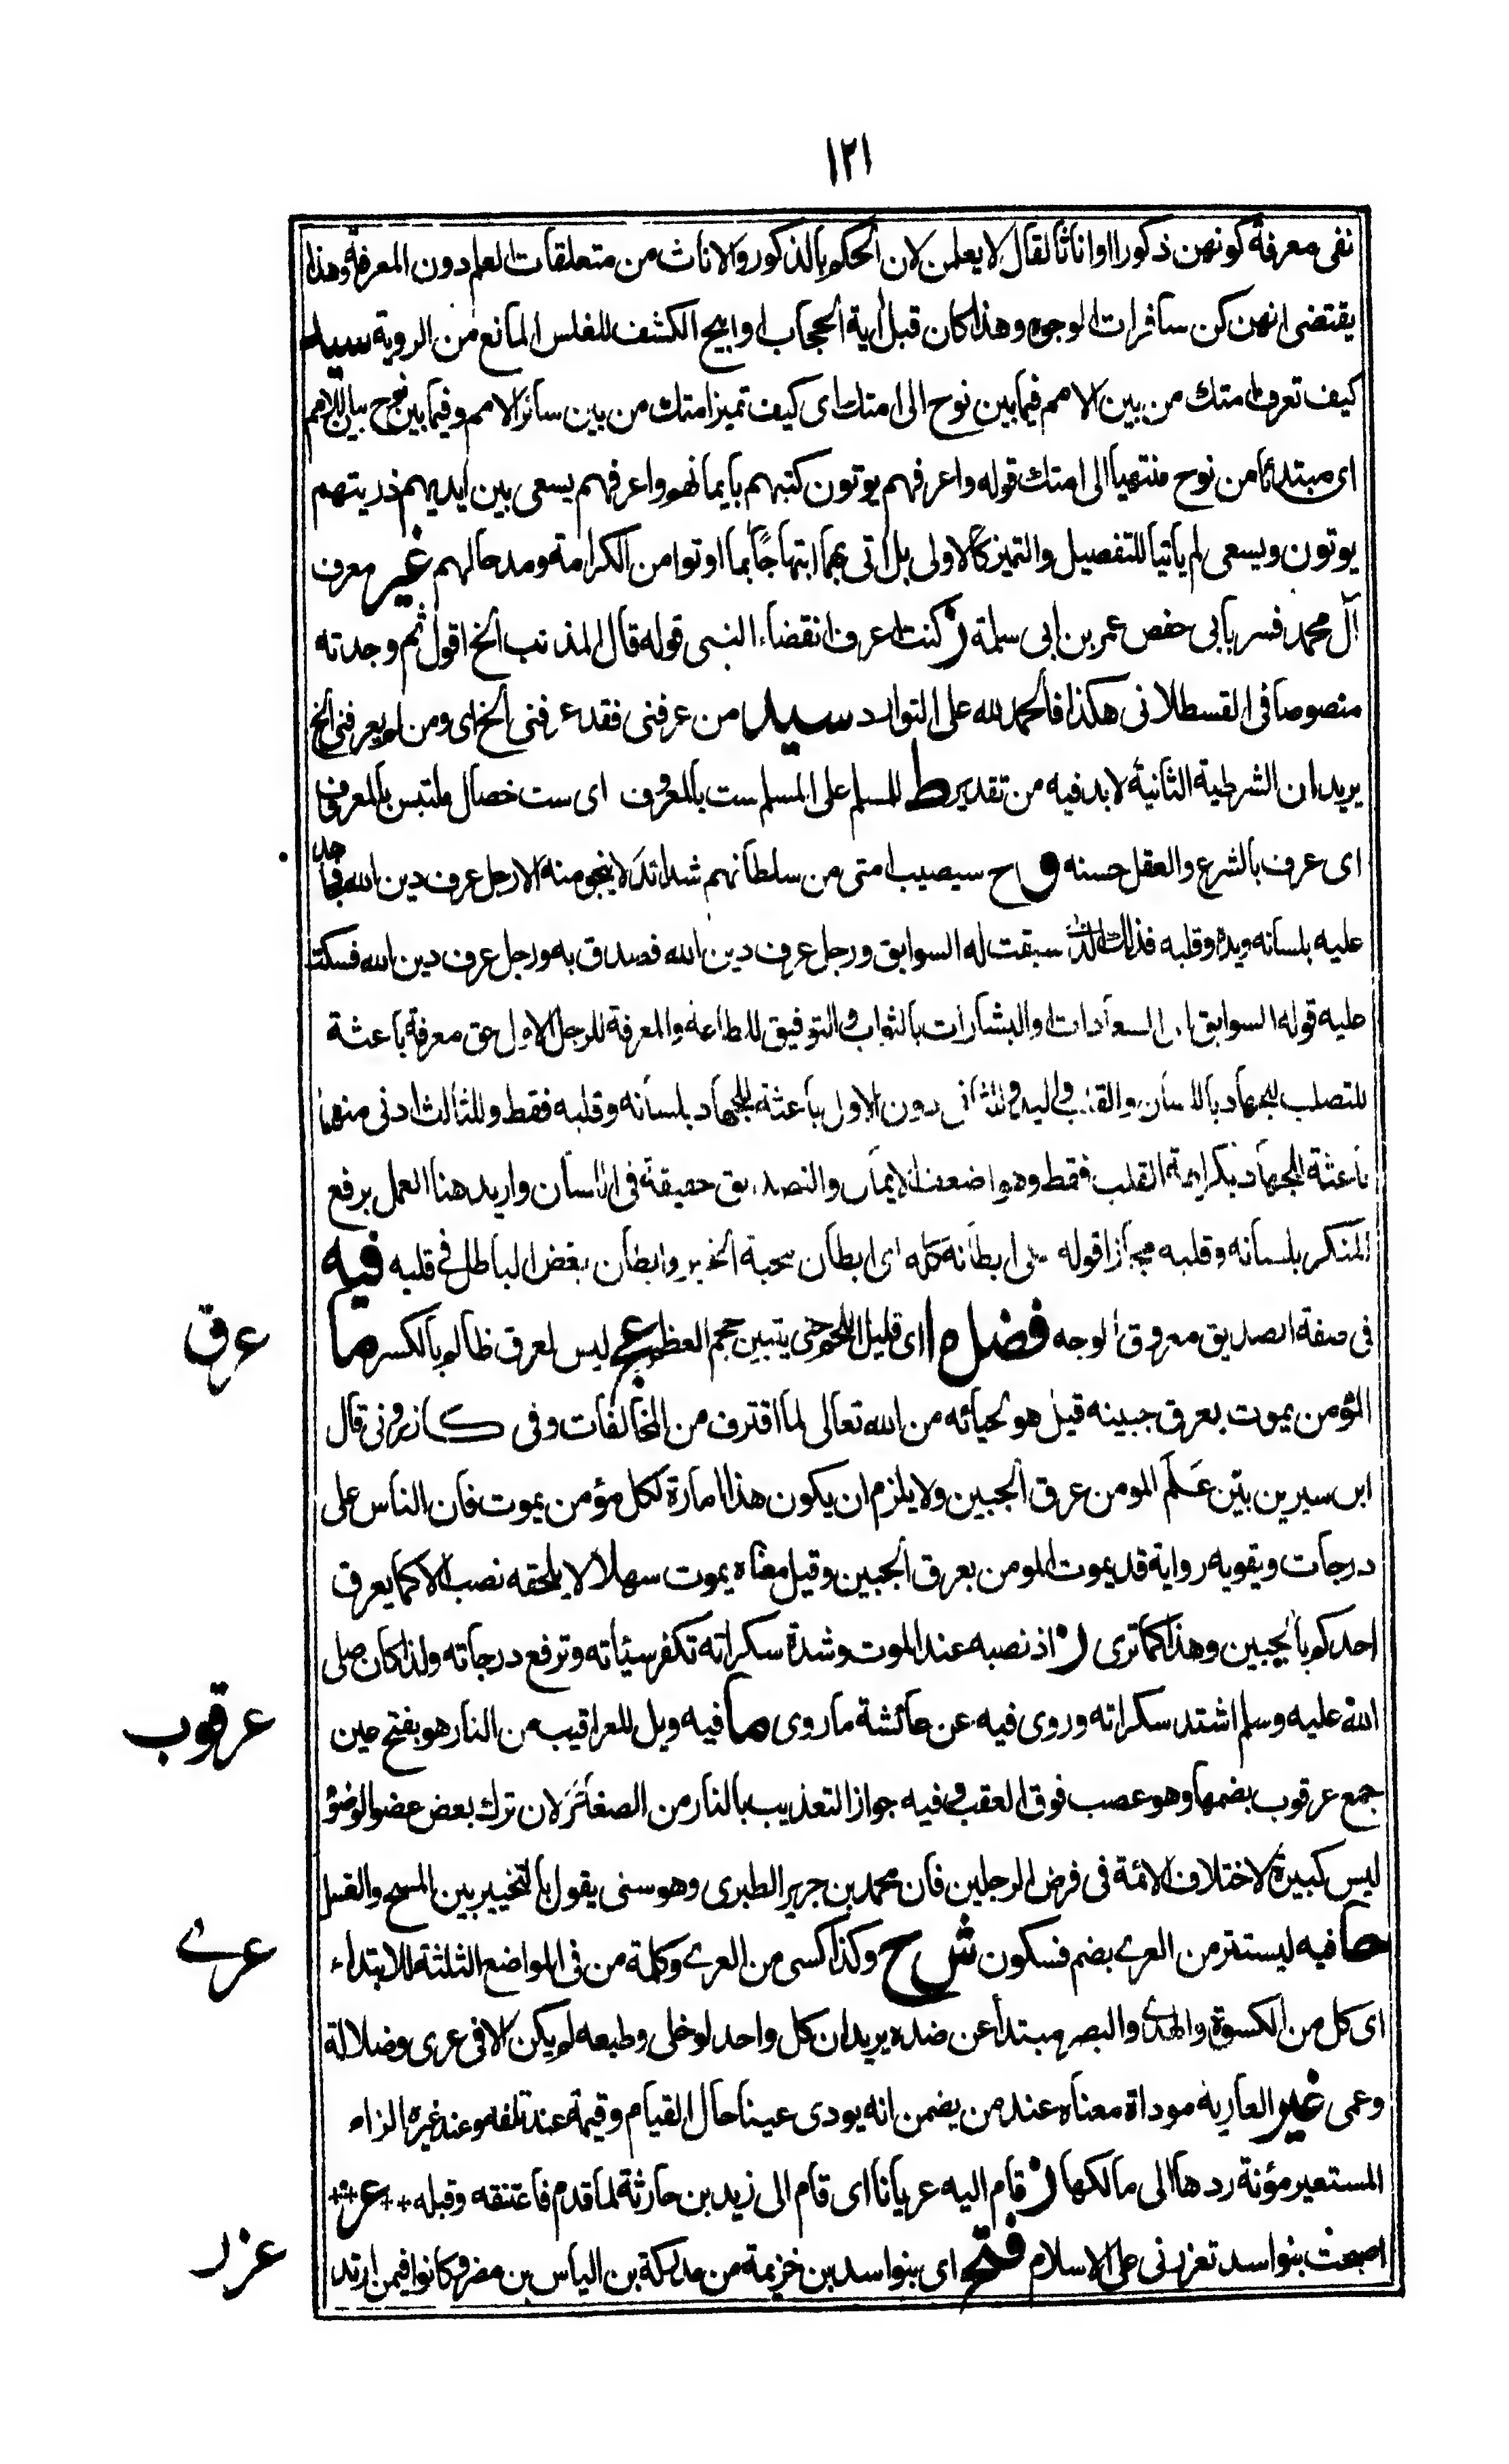 ١٢١
نفى معرفة كونهن ذكورا اواناثا لقال لا يعلمن لان الحكم بالذكور والاناث من متعلقات العلم دون المعرفة وهذا
يقتضى انهن كن سافرات الوجوه وهذا كان قبل اية الحجاب او ابيح الكشف للغلس المانع من الروية سيد
كيف تعرف امتك من بين الامم فيما بين نوح الى امتك اى كيف تميز امتك من بين سائر الامم وفيما بين نوح بيان للامم
اى مبتدئا من نوح منتهيا الى امتك قوله واعرفهم يوتون كتبهم بايمانهم واعرفهم يسعى بين ايديهم ذريتهم
يوتون ويسعى لم ياتيا للتفصيل والتميز كالاولى بل اتى بهما ابتهاجًا بما اوتوا من الكرامة ومدحا لهم غير معرف
آل محمد فسر بابى حفص عمر بن ابى سلمة ن كنت اعرف انقضاء النبى قوله قال المذنب الخ اقول ثم وجدته
منصوصا فى القسطلانى هكذا فالحمد لله على التوارد سيد من عرفنى فقد عرفنى الخ اى ومن لم يعرفنى الخ
يريد ان الشرطية الثانية لابد فيه من تقدير ط للمسلم على المسلم ست بالمعروف اى ست خصال ملتبس بالمعروف
اى عرف بالشرع والعقل حسنه وح سيصيب امتى من سلطانهم شدائد لا ينجو منه الا رجل عرف دين الله فجاهد
عليه بلسانه ويده وقلبه فذلك الذى سبقت له السوابق ورجل عرف دين الله فصدق به ورجل عرف دين الله فسكت
عليه قوله السوابق اى السعادات والبشارات بالثواب والتوفيق للطاعة والمعرفة للرجل الاول حق معرفة باعثة
للتصلب للجهاد باللسان والقلب واليد وللثانى دون الاول باعثة للجهاد بلسانه وقلبه فقط وللثالث ادنى منهما
باعثة للجهاد بكراهة القلب فقط وهو اضعف الايمان والتصديق حقيقة فى اللسان واريد هنا العمل برفع
المنكر بلسانه وقلبه مجازا قوله على ابطانه كله اى ابطان محبة الخير وابطان بغض الباطل فى قلبه فيه
عرق
فى صفة الصديق معروق الوجه فضل م ا اى قليل اللحم حتى يتبين حجم العظم ع ليس لعرق ظالم بالكسر ما
المؤمن يموت بعرق جبينه قيل هو لحيائه من الله تعالى لما اقترف من المخالفات وفى كازرونى قال
ابن سيرين بين عَلَم المومن عرق الجبين ولا يلزم ان يكون هذا امارة لكل مؤمن يموت فان الناس على
درجات ويقويه رواية قد يموت المومن بعرق الجبين وقيل معناه يموت سهلا لا يلحقه نصب الا كما يعرق
احدكم بالجبين وهذا كما ترى ن اذ نصبه عند الموت وشدة سكراته تكفر سيئاته وترفع درجاته ولذا كان صلى
عرقوب
الله عليه وسلم اشتد سكراته وروى فيه عن عائشة ما روى ما فيه ويل للعراقيب من النار هو بفتح عين
جمع عرقوب بضمها وهو عصب فوق العقب وفيه جواز التعذيب بالنار من الصغائر لان ترك بعض عضو الوضؤ
ليس كبيرة لاختلاف الائمة فى فرض الرجلين فان محمد بن جرير الطبرى وهو سنى يقول بالتخيير بين المسح والغسل
عرے
حا فيه ليستتر من العرے بضم فسكون ش ح وكذا كسى من العرے وكلمة من فى المواضع الثلثة للابتداء
اى كل من الكسوة والهدى والبصر مبتدأ عن ضده يريد ان كل واحد لو خلى وطبعه لم يكن الا فى عرى وضلالة
وعمى غير العارية موداة معناه عند من يضمن انه يودى عينا حال القيام وقيمة عند تلفه وعند غيره الزام
المستعير مؤنة ردها الى مالكها ن قام اليه عريانا اى قام الى زيد بن حارثة لما قدم فاعتنقه وقبله عز
عزر
اصبحت بنو اسد تعزرنى على الاسلام فتح اى بنو اسد بن خزيمة من مدركة بن الياس بن مضر وكانوا فيمن ارتد